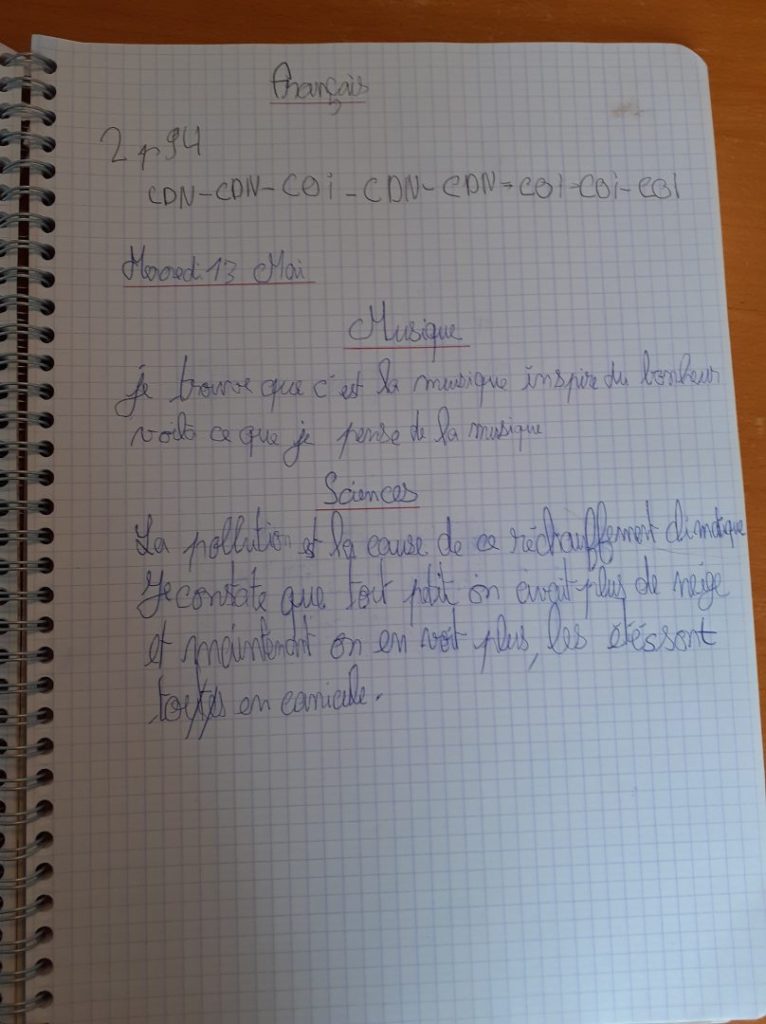 Français
2 p 94
CDN-CDN-COi-CDN-CDN-COI-COi-COI
Mercredi 13 Mai
Musique
je trouve que c'est la musique inspire du bonheur
voilà ce que je pense de la musique
Sciences
La pollution est la cause de ce réchauffement climatique
Je constate que tout petit on avait plus de neige
et maintenant on en voit plus, les étés sont
en canicule.